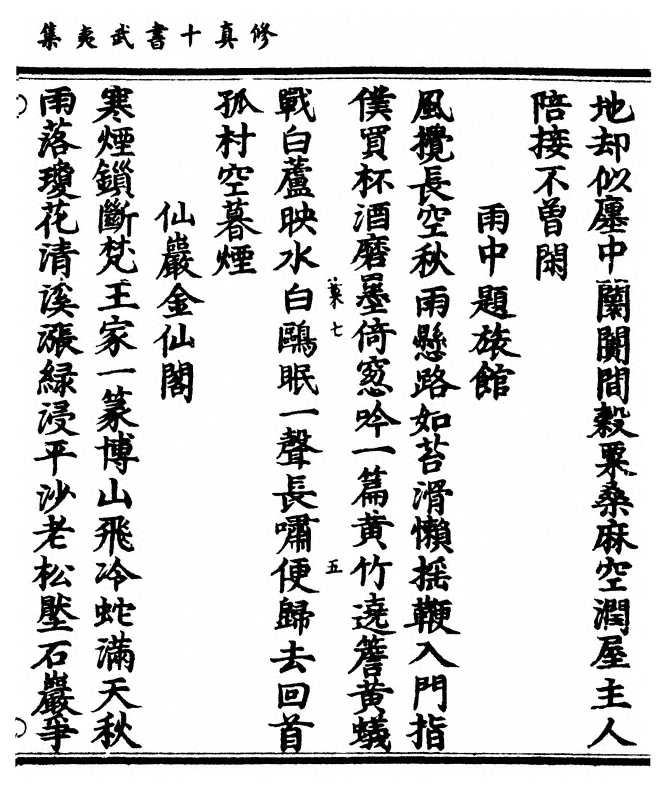 修真十書武夷集
地却似廛中闤闠間穀粟桑麻空潤屋主人
陪接不曾閑
雨中題旅館
風攪長空秋雨懸路如苔滑懶揺鞭入門指
僕買杯酒磨墨倚窓吟一篇黄竹遶簷黄蟻
菓七
五
戰白蘆映水白鷗眠一聲長嘯便歸去回首
孤村空暮煙
仙巖金仙閣
寒煙鎖斷梵王家一篆博山飛冷蛇滿天秋
雨落瓊花清溪漲緑浸平沙老松壓石巖爭